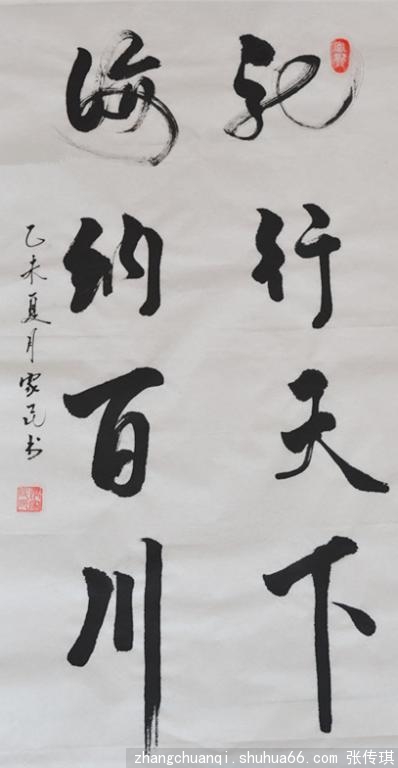 行天下
海纳百川
乙未夏月家民书
zhangchuanqi.shuhua66.com 张传琪